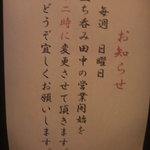 お知らせ
毎週 日曜日
立ち呑み田中の営業開始を
二時に変更させて頂きます
どうぞ宜しくお願いします